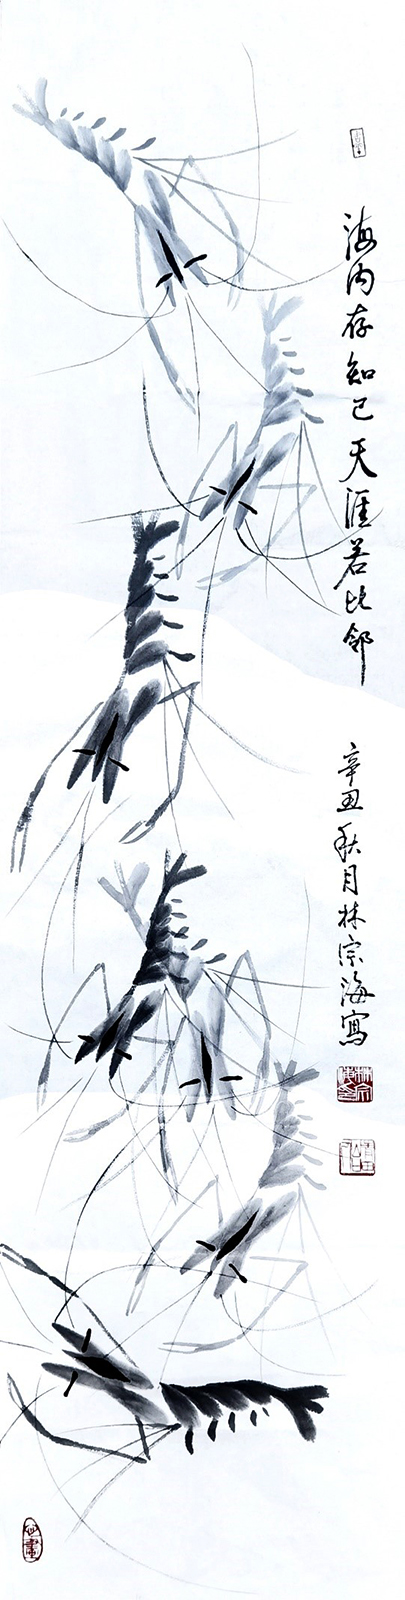 海内存知己天涯若比邻
辛丑秋月林宗海寫